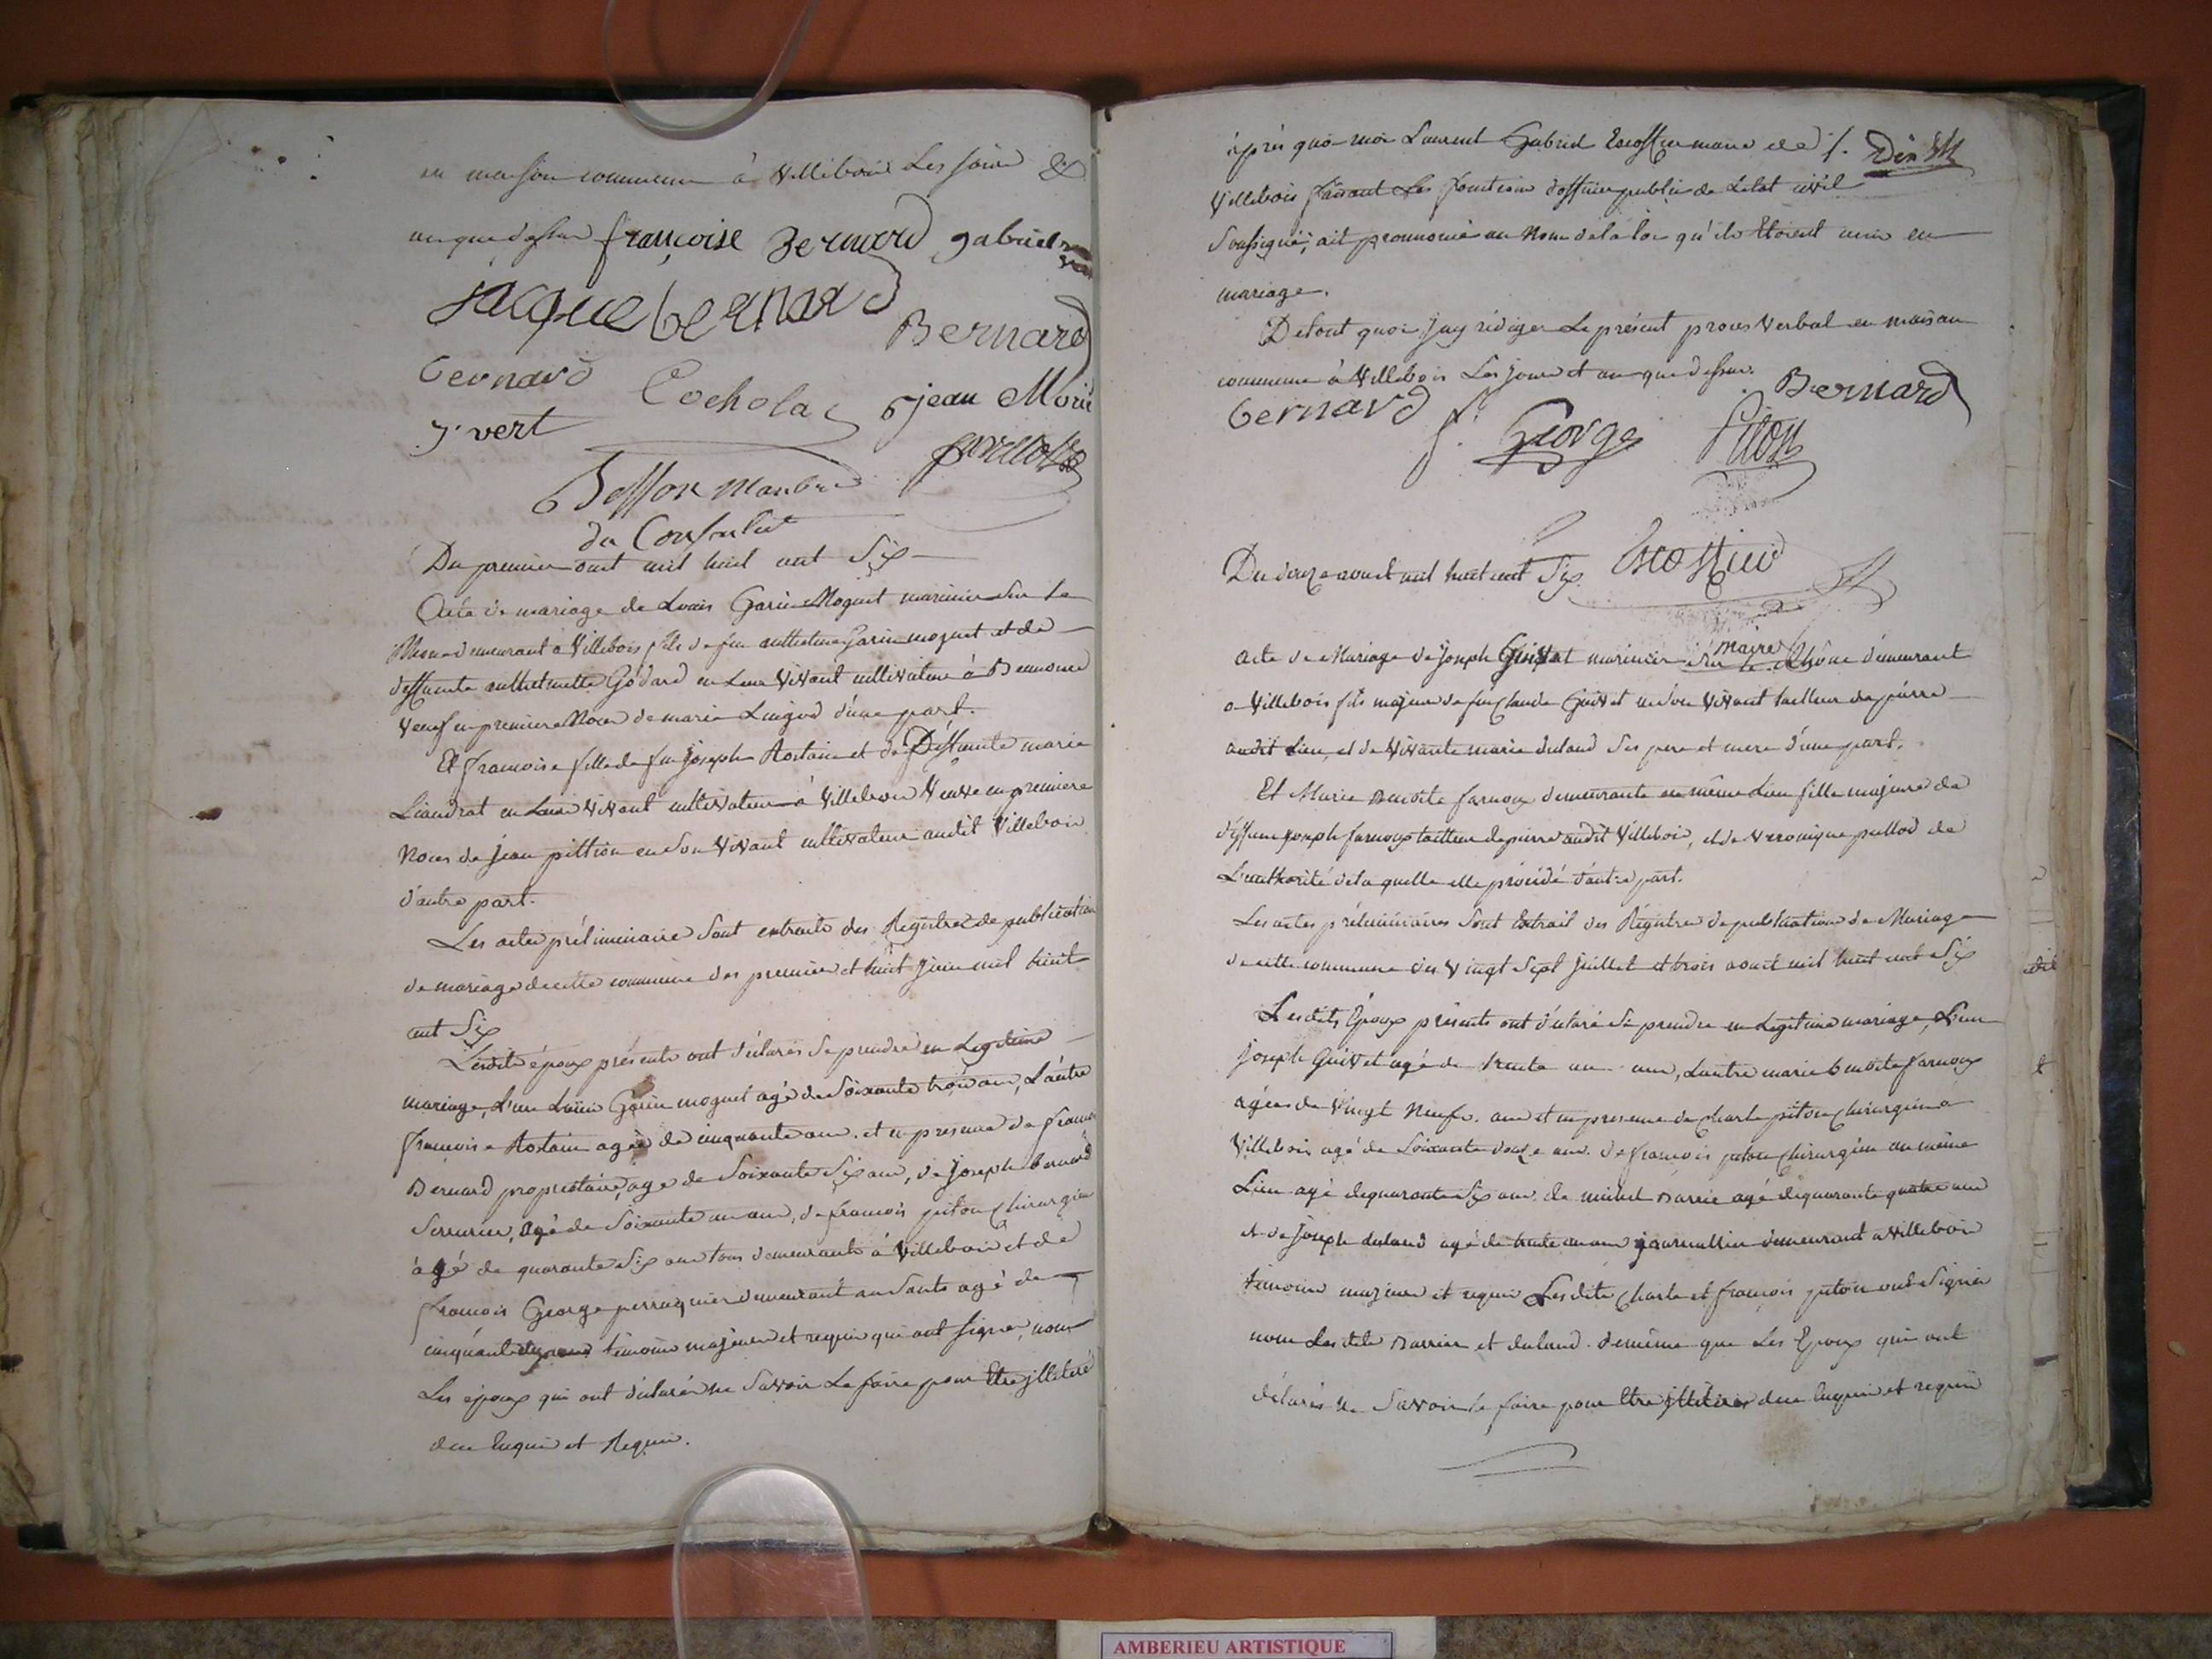 en maison commune à Villebois les jour &
an que dessus françoise Bernard gabriel
jacque bernard
Bernard
bernard Cochola jean
J. vert
Besson
du Consulat
Du premier aout mil huit cent Six
Acte de mariage de Louis Garin Moguet marinier sur le
Rhone demeurant à Villebois fils de feu anthelme Garin moguet et de
deffunte anthelmette Godard en leur vivant cultivateur à Benonce
Veuf en premiere Noces de marie d'une part.
Et francoise fille de feu joseph Rostain et de Deffunte marie
Liandrat en leur vivant cultivateur à Villebois Veuve en premiere
Noces de jean pittion en son vivant cultivateur audit Villebois
d'autre part.
Les actes préliminaire sont extraits des Registres de publication
de mariage de cette commune des premier et huit juin mil huit
cent Six
Lesdits époux présents ont déclarés se prendre en Legitime
mariage, L'un Louis Garin moguet agé de Soixante trois ans, L'autre
francoise Rostain agée de cinquante ans. et en presence de
Bernard propriétaire, agé de Soixante Six ans, de joseph bernard
Serrurier, agé de Soixante un ans, de francois piton chirurgien
agé de quarante Six ans tous demeurants à Villebois et de
francois George perruquier demeurant au Sault agé de
cinquante temoins majeurs et requis qui ont signer, non
Les époux qui ont déclarés ne Savoir Le faire pour Etre jlletéré
deue Enquis et Requis.
après quoi moi Laurent Gabriel Escoffier maire de Dix
Villebois faisant Les fonctions d'officier public de Letat civil
Soussigné, ait prononcé au Nom de la loi qu'ils Etoient unis en
mariage.
De tout quoi jay rédiger Le présent proces Verbal en maison
commune à Villebois Les jour et an que dessus. Bernard
bernard f. George Piton
Du douze aoust mil huit cent Six. Escoffier
maire
acte de Mariage de joseph Guivet marinier sur le Rhône demeurant
a Villebois fils majeur de feu Claude Guivet en son vivant tailleur de pierre
audit Lieu, et de vivante marie duland ses pere et mere d'une part.
Et Marie Benoite farnoux demeurante en même Lieu fille majeure de
deffunt joseph farnoux tailleur de pierre audit Villebois, et de Veronique de
L'authorité de la quelle elle procédé d'autre part.
Les actes préliminaires sont Extrait des Régistre de publication de Mariage
de cette commune des Vingt Sept juillet et trois aoust mil huit cent Six
Lesdits Epoux présents ont déclaré se prendre en Legitime mariage, L'un
joseph Guivet agé de trente un ans, L'autre marie benoite farnoux
agées de Vingt Neuf. ans et en presence de Charle piton Chirurgien a
Villebois agé de Soixante douze ans. de francois piton chirurgien au même
Lieu agé de quarante Six ans, de michel Barrier agé de quarante quatre ans
et de joseph duland agé de trente un ans journallier demeurant a Villebois
témoins majeurs et requis Lesdits Charle et françois piton ont Signer
non Lesdits Barrier et duland. de même que Les Epoux qui ont
déclarés ne Savoir le faire pour Etre jlletérés deue Enquis et requis
AMBERIEU ARTISTIQUE